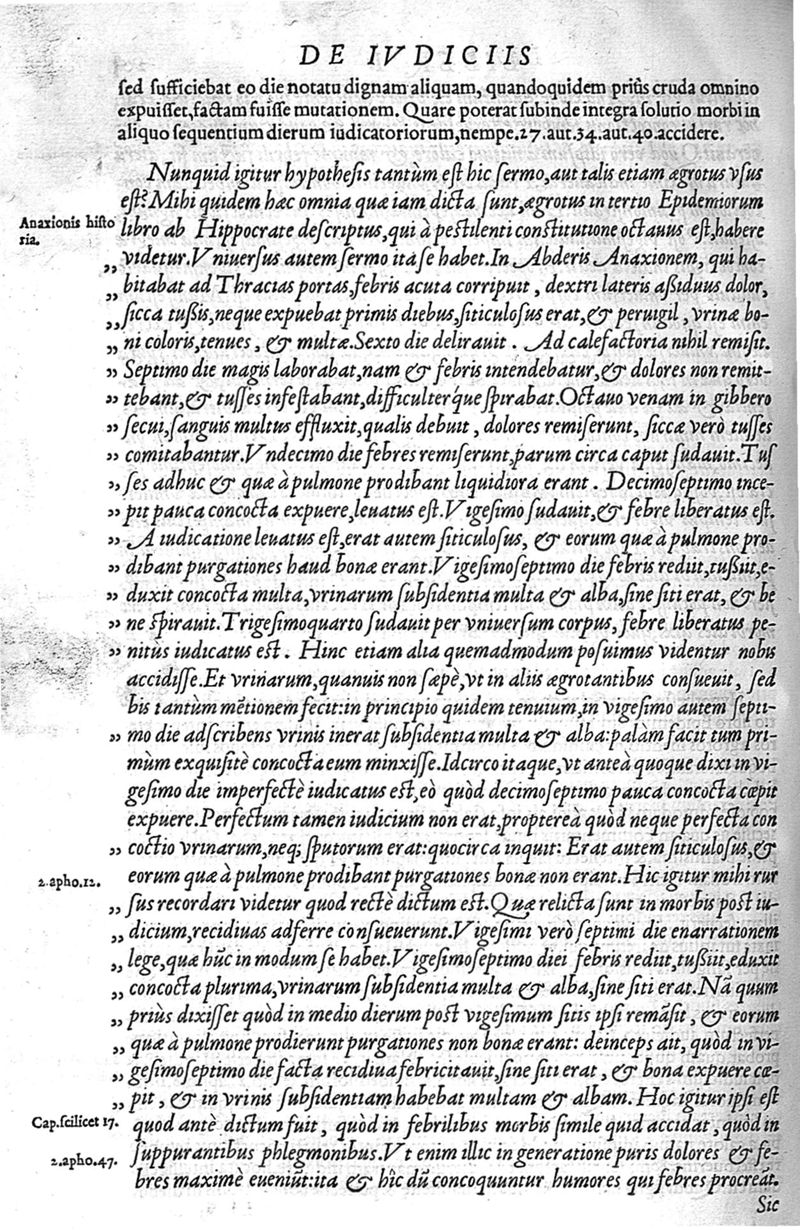 DE IVDICIIS
sed sufficiebat eo die notatu dignam aliquam, quandoquidem priùs cruda omnino
expuisset, factam fuisse mutationem. Quare poterat subinde integra solutio morbi in
aliquo sequentium dierum iudicatoriorum, nempe. 27. aut. 34. aut. 40. accidere.
Nunquid igitur hypothesis tantùm est hic sermo, aut talis etiam ægrotus vsus
est? Mihi quidem hæc omnia quæ iam dicta sunt, ægrotus in tertio Epidemiorum
Anaxionis histo
ria.
libro ab Hippocrate descriptus, qui à pestilenti constitutione octauus est, habere
videtur. Vniuersus autem sermo ita se habet. In Abderis Anaxionem, qui ha-
„ bitabat ad Thracias portas, febris acuta corripuit, dextri lateris aßiduus dolor,
„ sicca tußis, neque expuebat primis diebus, siticulosus erat, & peruigil, vrinæ bo-
„ ni coloris, tenues, & multæ. Sexto die delirauit. Ad calefactoria nihil remisit.
„ Septimo die magis laborabat, nam & febris intendebatur, & dolores non remit-
„ tebant, & tusses infestabant, difficulterq́ue spirabat. Octauo venam in gibbero
„ secui, sanguis multus effluxit, qualis debuit, dolores remiserunt, siccæ verò tusses
„ comitabantur. Vndecimo die febres remiserunt, parum circa caput sudauit. Tus
„ ses adhuc & quæ à pulmone prodibant liquidiora erant. Decimoseptimo ince-
„ pit pauca concocta expuere, leuatus est. Vigesimo sudauit, & febre liberatus est.
„ A iudicatione leuatus est, erat autem siticulosus, & eorum quæ à pulmone pro-
„ dibant purgationes haud bonæ erant. Vigesimoseptimo die febris rediit, tußiit, e-
„ duxit concocta multa, vrinarum subsidentia multa & alba, sine siti erat, & be
„ ne spirauit. Trigesimoquarto sudauit per vniuersum corpus, febre liberatus pe-
„ nitùs iudicatus est. Hinc etiam alia quemadmodum posuimus videntur nobis
accidisse. Et vrinarum, quanuis non sæpè, vt in aliis ægrotantibus consueuit, sed
bis tantùm mētionem fecit: in principio quidem tenuium, in vigesimo autem septi-
„ mo die adscribens vrinis inerat subsidentia multa & alba: palàm facit tum pri-
mùm exquisitè concocta eum minxisse. Idcirco itaque, vt anteà quoque dixi in vi-
gesimo die imperfectè iudicatus est, eò quòd decimoseptimo pauca concocta cœpit
expuere. Perfectum tamen iudicium non erat, propterea quòd neque perfecta con
„ coctio vrinarum, neq; sputorum erat: quocirca inquit: Erat autem siticulosus, &
2. apho. 12.
eorum quæ à pulmone prodibant purgationes bonæ non erant. Hic igitur mihi rur
„ sus recordari videtur quod rectè dictum est. Quæ relicta sunt in morbis post iu-
„ dicium, recidiuas adferre consueuerunt. Vigesimi verò septimi die enarrationem
„ lege, quæ hūc in modum se habet. Vigesimoseptimo diei febris rediit, tußiit, eduxit
„ concocta plurima, vrinarum subsidentia multa & alba, sine siti erat. Nā quum
„ priùs dixisset quòd in medio dierum post vigesimum sitis ipsi remāsit, & eorum
„ quæ à pulmone prodierunt purgationes non bonæ erant: deinceps ait, quòd in vi-
„ gesimoseptimo die facta recidiua febricitauit, sine siti erat, & bona expuere cœ-
„ pit, & in vrinis subsidentiam habebat multam & albam. Hoc igitur ipsi est
Cap. scilicet 17.
quod antè dictum fuit, quòd in febrilibus morbis simile quid accidat, quòd in
2. apho. 47.
suppurantibus phlegmonibus. Vt enim illic in generatione puris dolores & fe-
bres maximè eueniūt: ita & hîc dū concoquuntur humores qui febres procreāt.
Sic